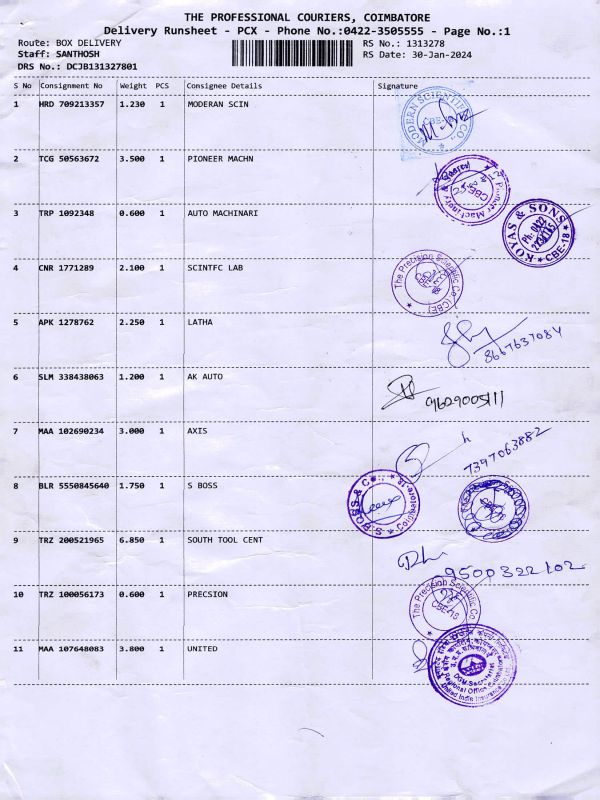 THE PROFESSIONAL COURIERS, COIMBATORE
Delivery Runsheet - PCX - Phone No.:0422-3505555 - Page No.:1
Route: BOX DELIVERY RS No.: 1313278
Staff: SANTHOSH RS Date: 30-Jan-2024
DRS No.: DCJB131327801
S No Consignment No Weight PCS Consignee Details Signature
1 HRD 709213357 1.230 1 MODERAN SCIN
MODERN SCIENTIFIC CO.,
CBE
2 TCG 50563672 3.500 1 PIONEER MACHN
Pioneer Machinery &
CBE
3 TRP 1092348 0.600 1 AUTO MACHINARI
KOYAS & SONS
Ph: 0422
CBE-18
4 CNR 1771289 2.100 1 SCINTFC LAB
The Precision Scientific Co (CBE)
5 APK 1278762 2.250 1 LATHA
8667637084
6 SLM 338438063 1.200 1 AK AUTO
9629005111
7 MAA 102690234 3.000 1 AXIS
7397063882
8 BLR 5550845640 1.750 1 S BOSS
S.BOSS & CO.,
Coimbatore-18
9 TRZ 200521965 6.850 1 SOUTH TOOL CENT
9500322102
10 TRZ 100056173 0.600 1 PRECSION
The Precision Scientific Co
CBE-18
11 MAA 107648083 3.800 1 UNITED
DGM-Secretariat
Regional Office Coimbatore
United India Insurance Co. Ltd.